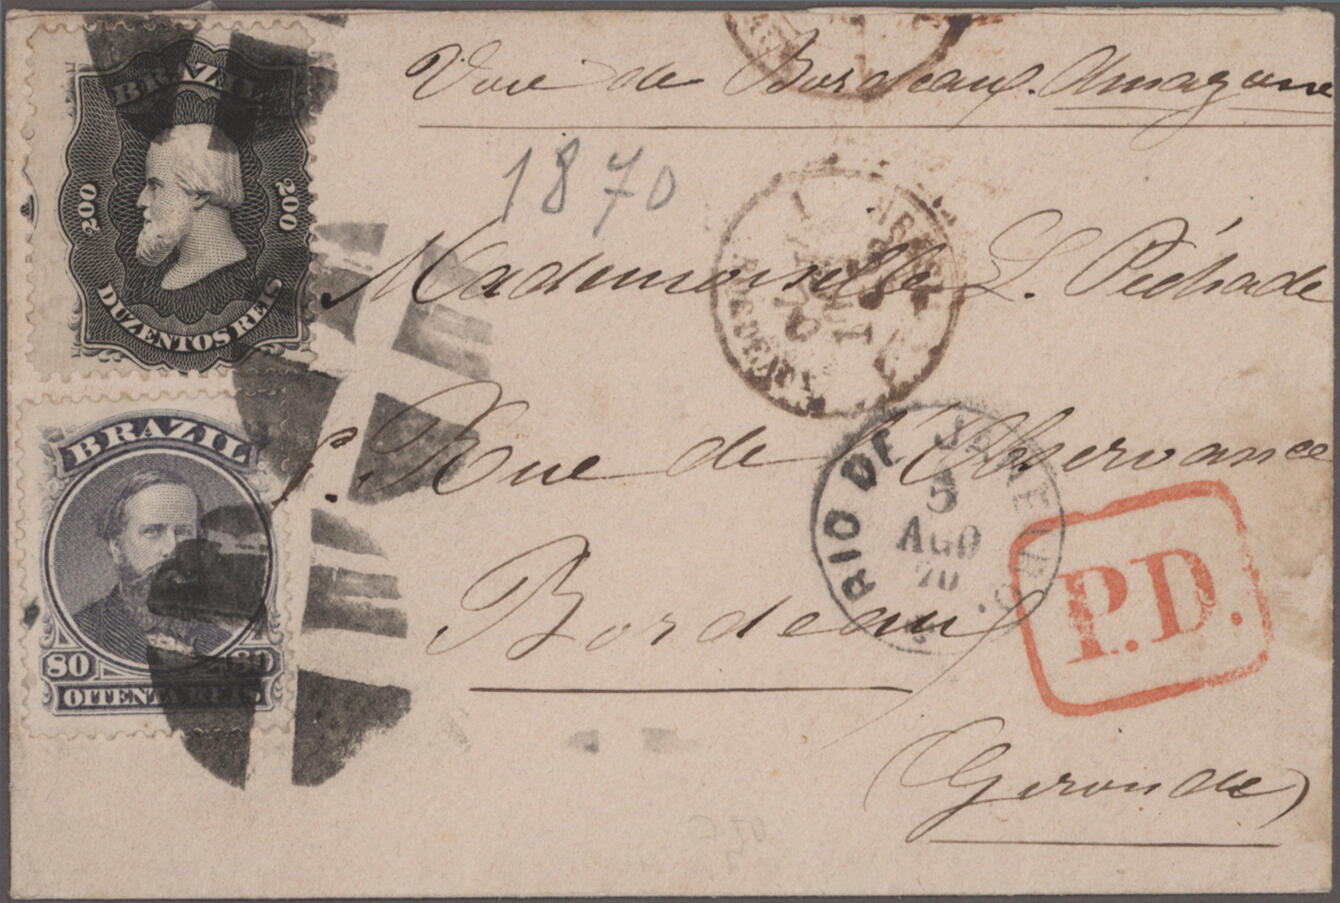 BRAZIL
200 200
DUZENTOS REIS
BRAZIL
80 80
OITENTA REIS
Voie de Bordeaux. Amazone
1870
Mademoiselle L. Pichade
Rue de l'Observance
Bordeaux
(Gironde)
RIO DE JANEIRO.
5
AGO
70
P.D.